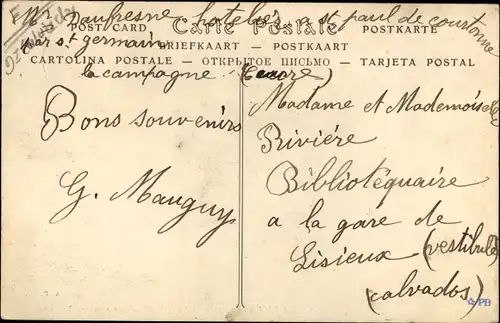 Mr Daufresne hoteles a st paul de courtonne
par st germain
la campagne (eure)
POST CARD
Carte Postale
POSTKARTE
BRIEFKAART — POSTKAART
CARTOLINA POSTALE — ОТКРЫТОЕ ПИСЬМО — TARJETA POSTAL
Bons souvenirs
G. Mauguy
Madame et Mademoiselle
Rivière
Bibliotéquaire
a la gare de
Lisieux (vestibule)
(calvados)
PB